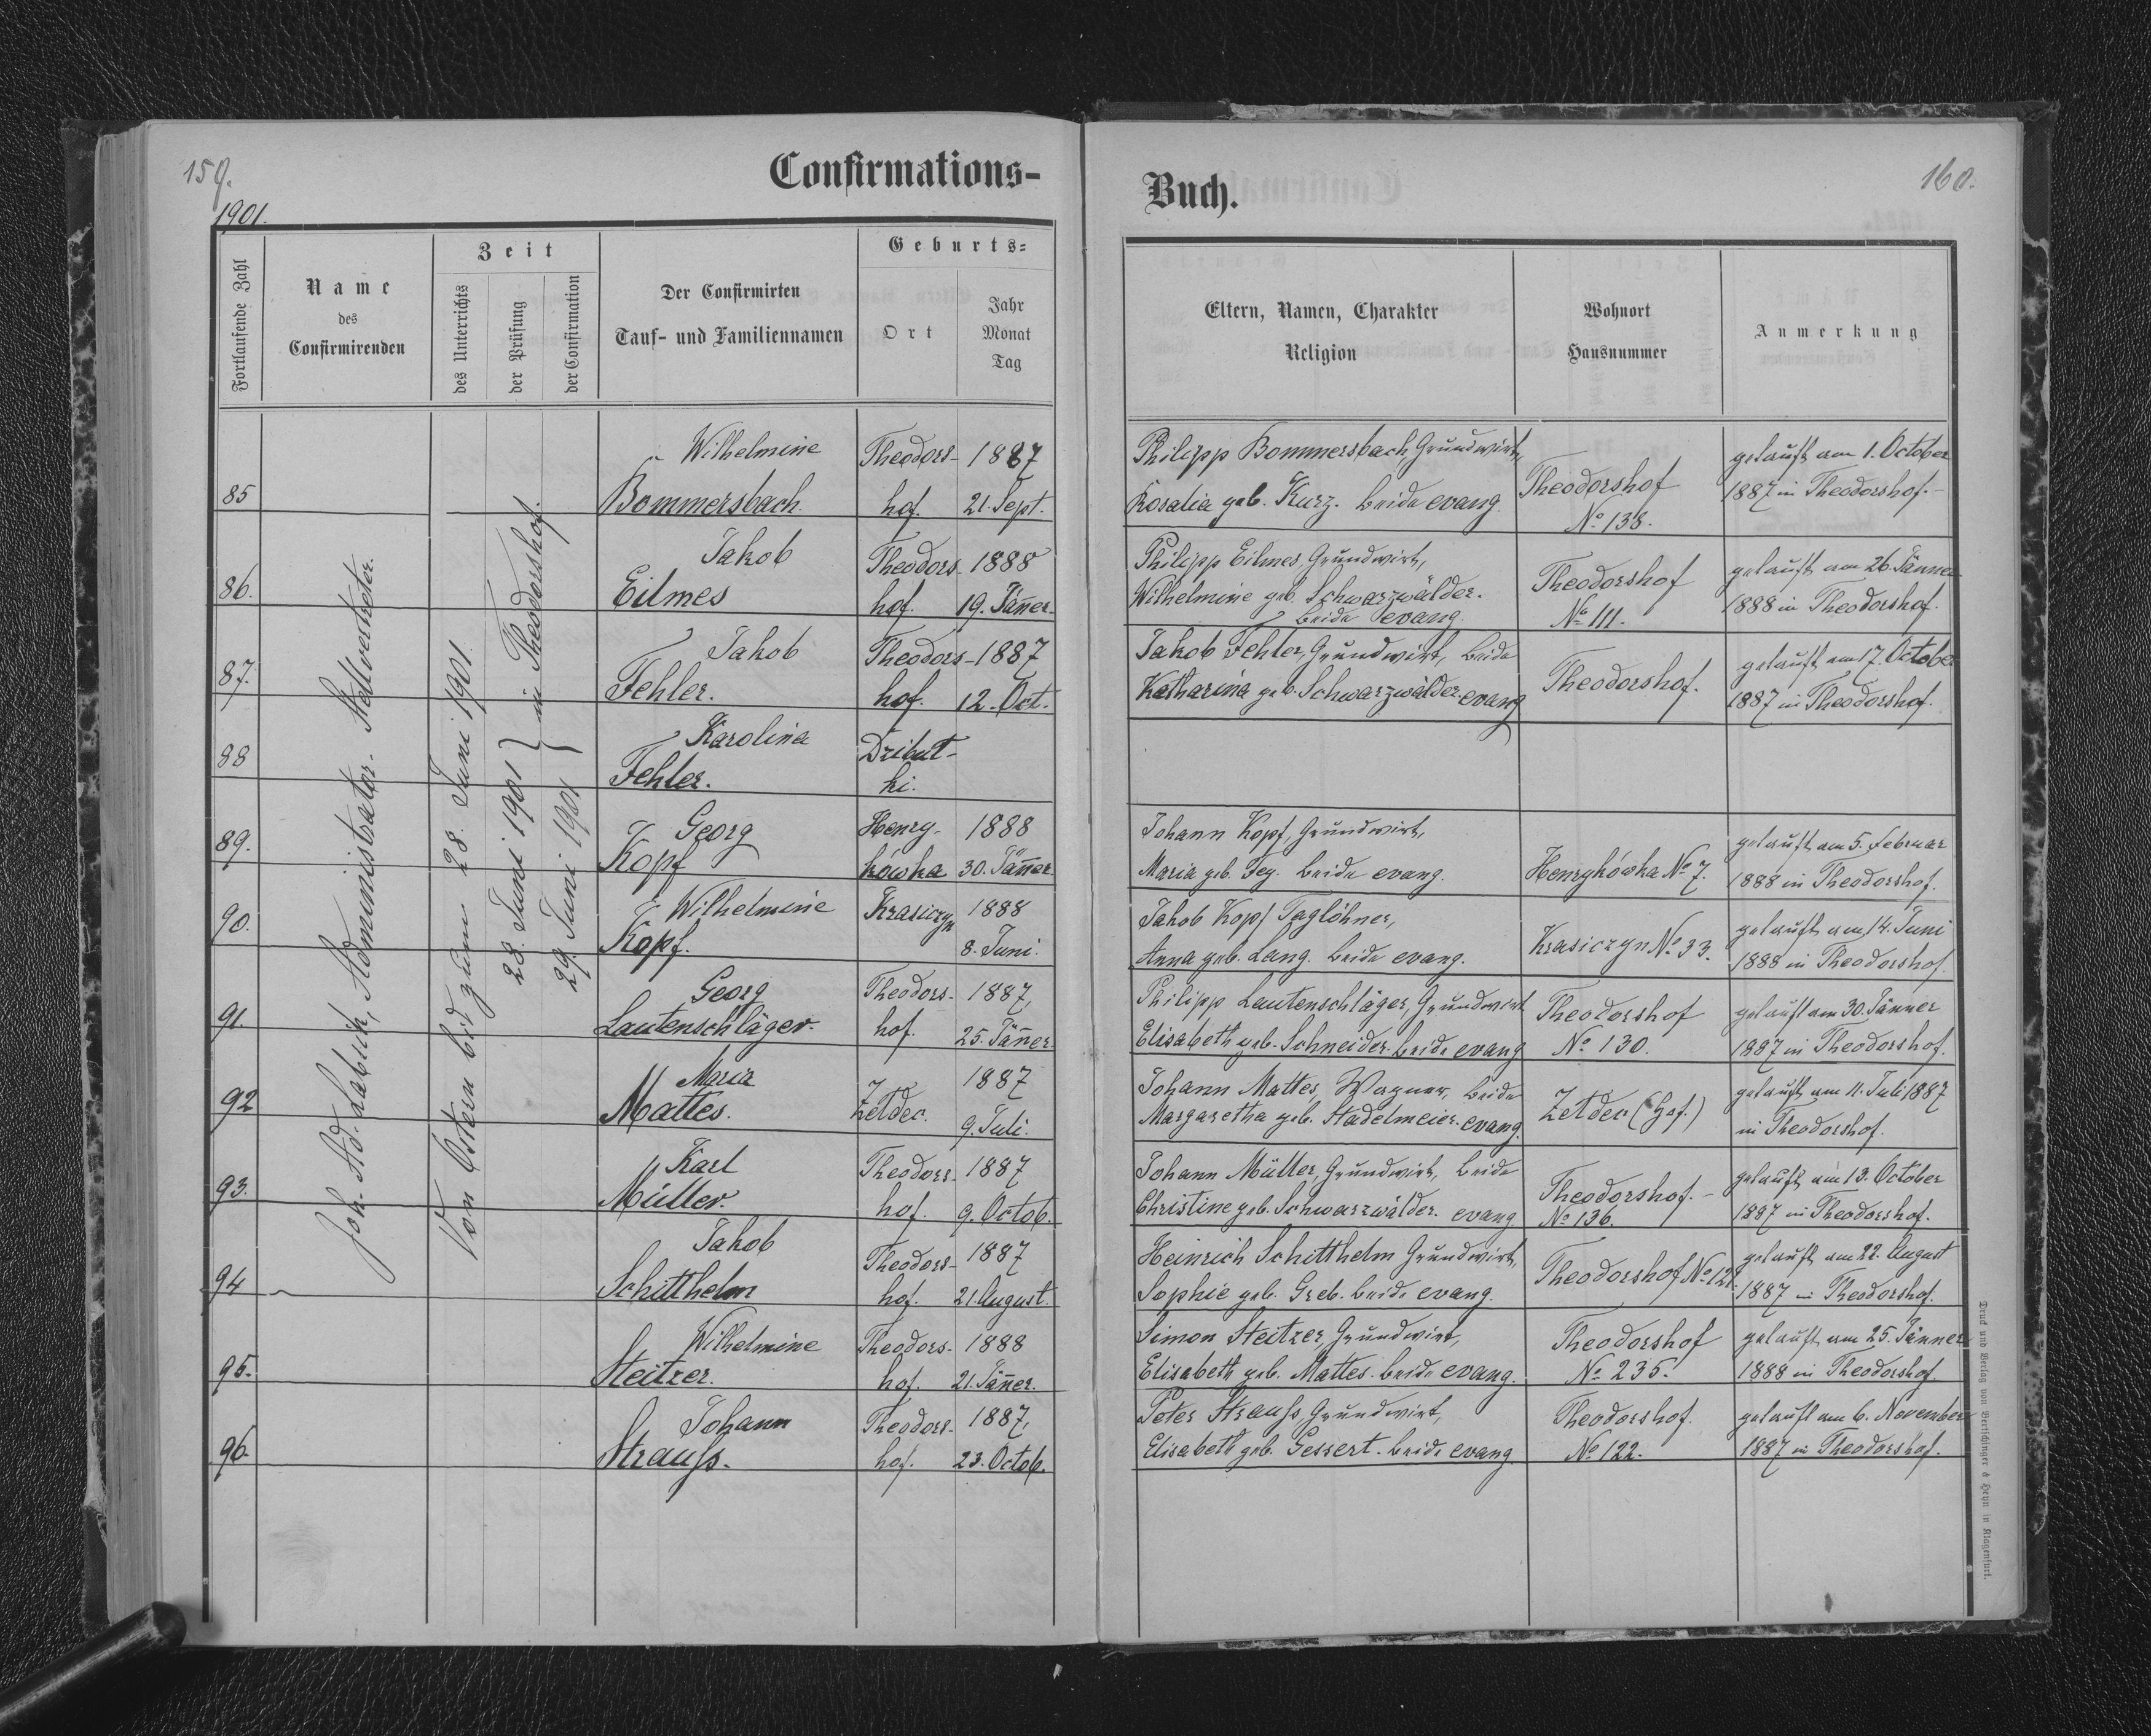 159.
Confirmations-
1901.
Fortlaufende Zahl
Name
des
Confirmirenden
Zeit
des Unterrichts
der Prüfung
der Confirmation
Der Confirmirten
Tauf- und Familiennamen
Geburts-
Ort
Jahr
Monat
Tag
Joh. Ad. Labsik, Administrator-Stellvertreter.
Von Ostern bis zum 28. Juni 1901.
28. Juni 1901 } in Theodorshof.
29. Juni 1901
85
Wilhelmine
Bommersbach.
Theodors-
hof.
1887
21. Sept.
86.
Jakob
Eilmes
Theodors-
hof.
1888
19. Jäner.
87.
Jakob
Fehler.
Theodors-
hof.
1887
12. Oct.
88
Karolina
Fehler.
Dzibut-
ki.
89.
Georg
Kopf
Henry-
kówka
1888
30. Jäner.
90.
Wilhelmine
Kopf.
Krasiczyn
1888
8. Juni.
91.
Georg
Lautenschläger.
Theodors-
hof.
1887,
25. Jäner.
92
Maria
Mattes.
Zetdec.
1887
9. Juli.
93.
Karl
Müller.
Theodors-
hof.
1887
9. Octob.
94
Jakob
Schitthelm
Theodors-
hof.
1887
21. August.
95.
Wilhelmine
Steitzer.
Theodors-
hof.
1888
21. Jäner.
96.
Johann
Strauß.
Theodors-
hof.
1887,
23. Octob.
160.
Buch.
Eltern, Namen, Charakter
Religion
Wohnort
Hausnummer
Anmerkung
Philipp Bommersbach, Grundwirt,
Rosalia geb. Kurz. beide evang.
Theodorshof
No 138.
getauft am 1. October
1887 in Theodorshof.
Philipp Eilmes, Grundwirt,
Wilhelmine geb. Schwarzwälder.
beide evang.
Theodorshof
No 111.
getauft am 26. Jänner
1888 in Theodorshof.
Jakob Fehler, Grundwirt, beide
Katharina geb. Schwarzwälder. evang
Theodorshof.
getauft am 17. October
1887 in Theodorshof.
Johann Kopf, Grundwirt,
Maria geb. Fey. beide evang.
Henrykówka No 7.
getauft am 5. Februar
1888 in Theodorshof.
Jakob Kopf Taglöhner,
Anna geb. Lang. beide evang.
Krasiczyn No 33.
getauft am 14. Juni
1888 in Theodorshof.
Philipp Lautenschläger, Grundwirt
Elisabeth geb. Schneider. beide evang
Theodorshof
No 130.
getauft am 30. Jänner
1887 in Theodorshof.
Johann Mattes, Wagner, beide
Margaretha geb. Stadelmeier. evang.
Zetdec (Hof.)
getauft am 11. Juli 1887
in Theodorshof.
Johann Müller, Grundwirt, beide
Christine geb. Schwarzwälder. evang
Theodorshof. -
No 136.
getauft am 13. October
1887 in Theodorshof.
Heinrich Schitthelm Grundwirt,
Sophie geb. Greb. beide evang.
Theodorshof No 121.
getauft am 22. August
1887 in Theodorshof.
Simon Steitzer, Grundwirt,
Elisabeth geb. Mattes. beide evang.
Theodorshof
No 235.
getauft am 25. Jänner
1888 in Theodorshof.
Peter Strauß, Grundwirt,
Elisabeth geb. Gessert. beide evang
Theodorshof.
No 122.
getauft am 6. November
1887 in Theodorshof.
Druck und Verlag von Bertschinger & Heyn in Klagenfurt.